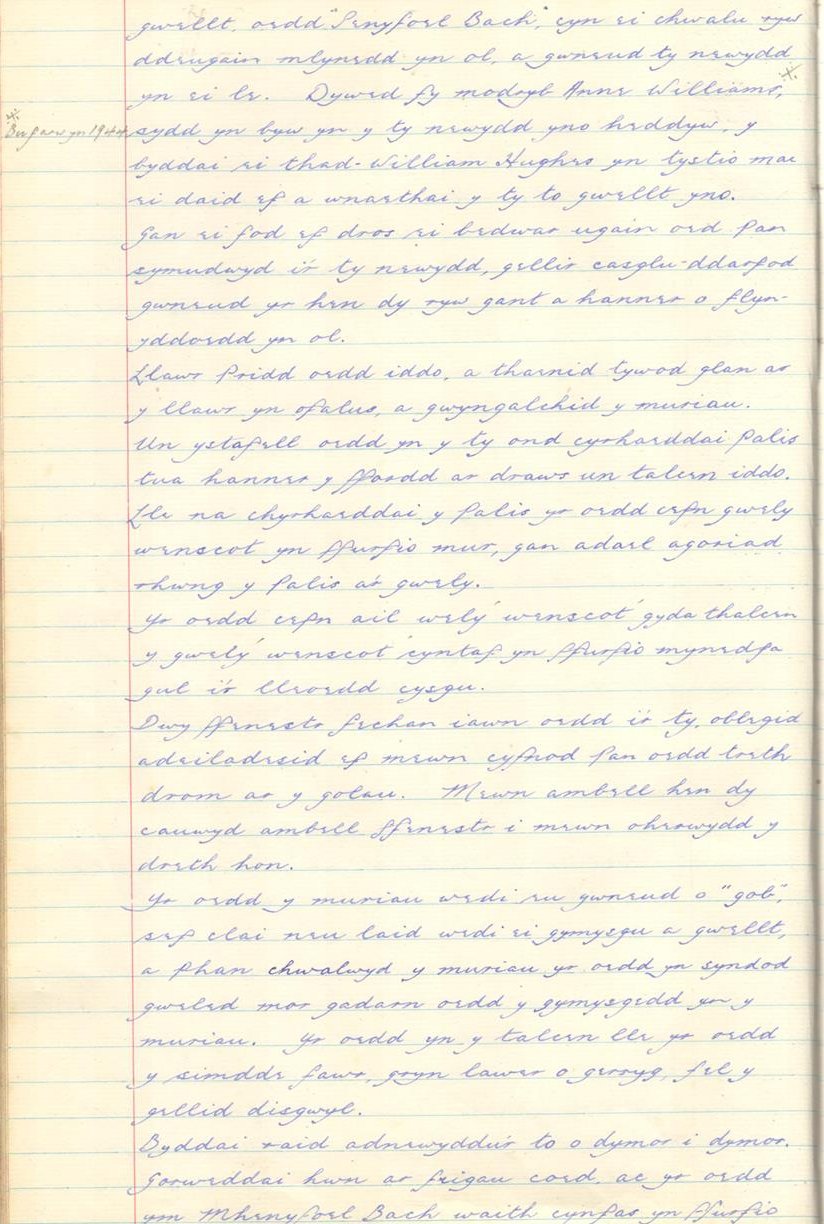 gwellt, oedd "Penyfoel Bach", cyn ei chwalu ryw
ddeugain mlynedd yn ol, a gwneud ty newydd
yn ei le. Dywed fy modryb Anne Williams, *
* Bu farw yn 1944
sydd yn byw yn y ty newydd yno heddyw, y
byddai ei thad - William Hughes yn tystio mae
ei daid ef a wnaethai y ty to gwellt yno.
Gan ei fod ef dros ei bedwar ugain oed pan
symudwyd i'r ty newydd, gellir casglu - ddarfod
gwneud yr hen dy ryw gant a hanner o flyn-
yddoedd yn ol.
Llawr pridd oedd iddo, a thaenid tywod glan ar
y llawr yn ofalus, a gwyngalchid y muriau.
Un ystafell oedd yn y ty ond cyrhaeddai palis
tua hanner y ffordd ar draws un talcen iddo.
Lle na chyrhaeddai y palis yr oedd cefn gwely
wenscot yn ffurfio mur, gan adael agoriad
rhwng y palis a'r gwely.
Yr oedd cefn ail wely 'wenscot' gyda thalcen
y gwely 'wenscot' cyntaf yn ffurfio mynedfa
gul i'r lleoedd cysgu.
Dwy ffenestr fechan iawn oedd i'r ty, oblegid
adeiladesid ef mewn cyfnod pan oedd treth
drom ar y golau. Mewn ambell hen dy
cauwyd ambell ffenestr i mewn oherwydd y
dreth hon.
Yr oedd y muriau wedi eu gwneud o "gob",
sef clai neu laid wedi ei gymysgu a gwellt,
a phan chwalwyd y muriau yr oedd yn syndod
gweled mor gadarn oedd y gymysgedd yn y
muriau. Yr oedd yn y talcen lle yr oedd
y simdde fawr, gryn lawer o gerryg, fel y
gellid disgwyl.
Byddai raid adnewyddu'r to o dymor i dymor.
Gorweddai hwn ar frigau coed, ac yr oedd
ym Mhenyfoel Bach waith cynfas yn ffurfio